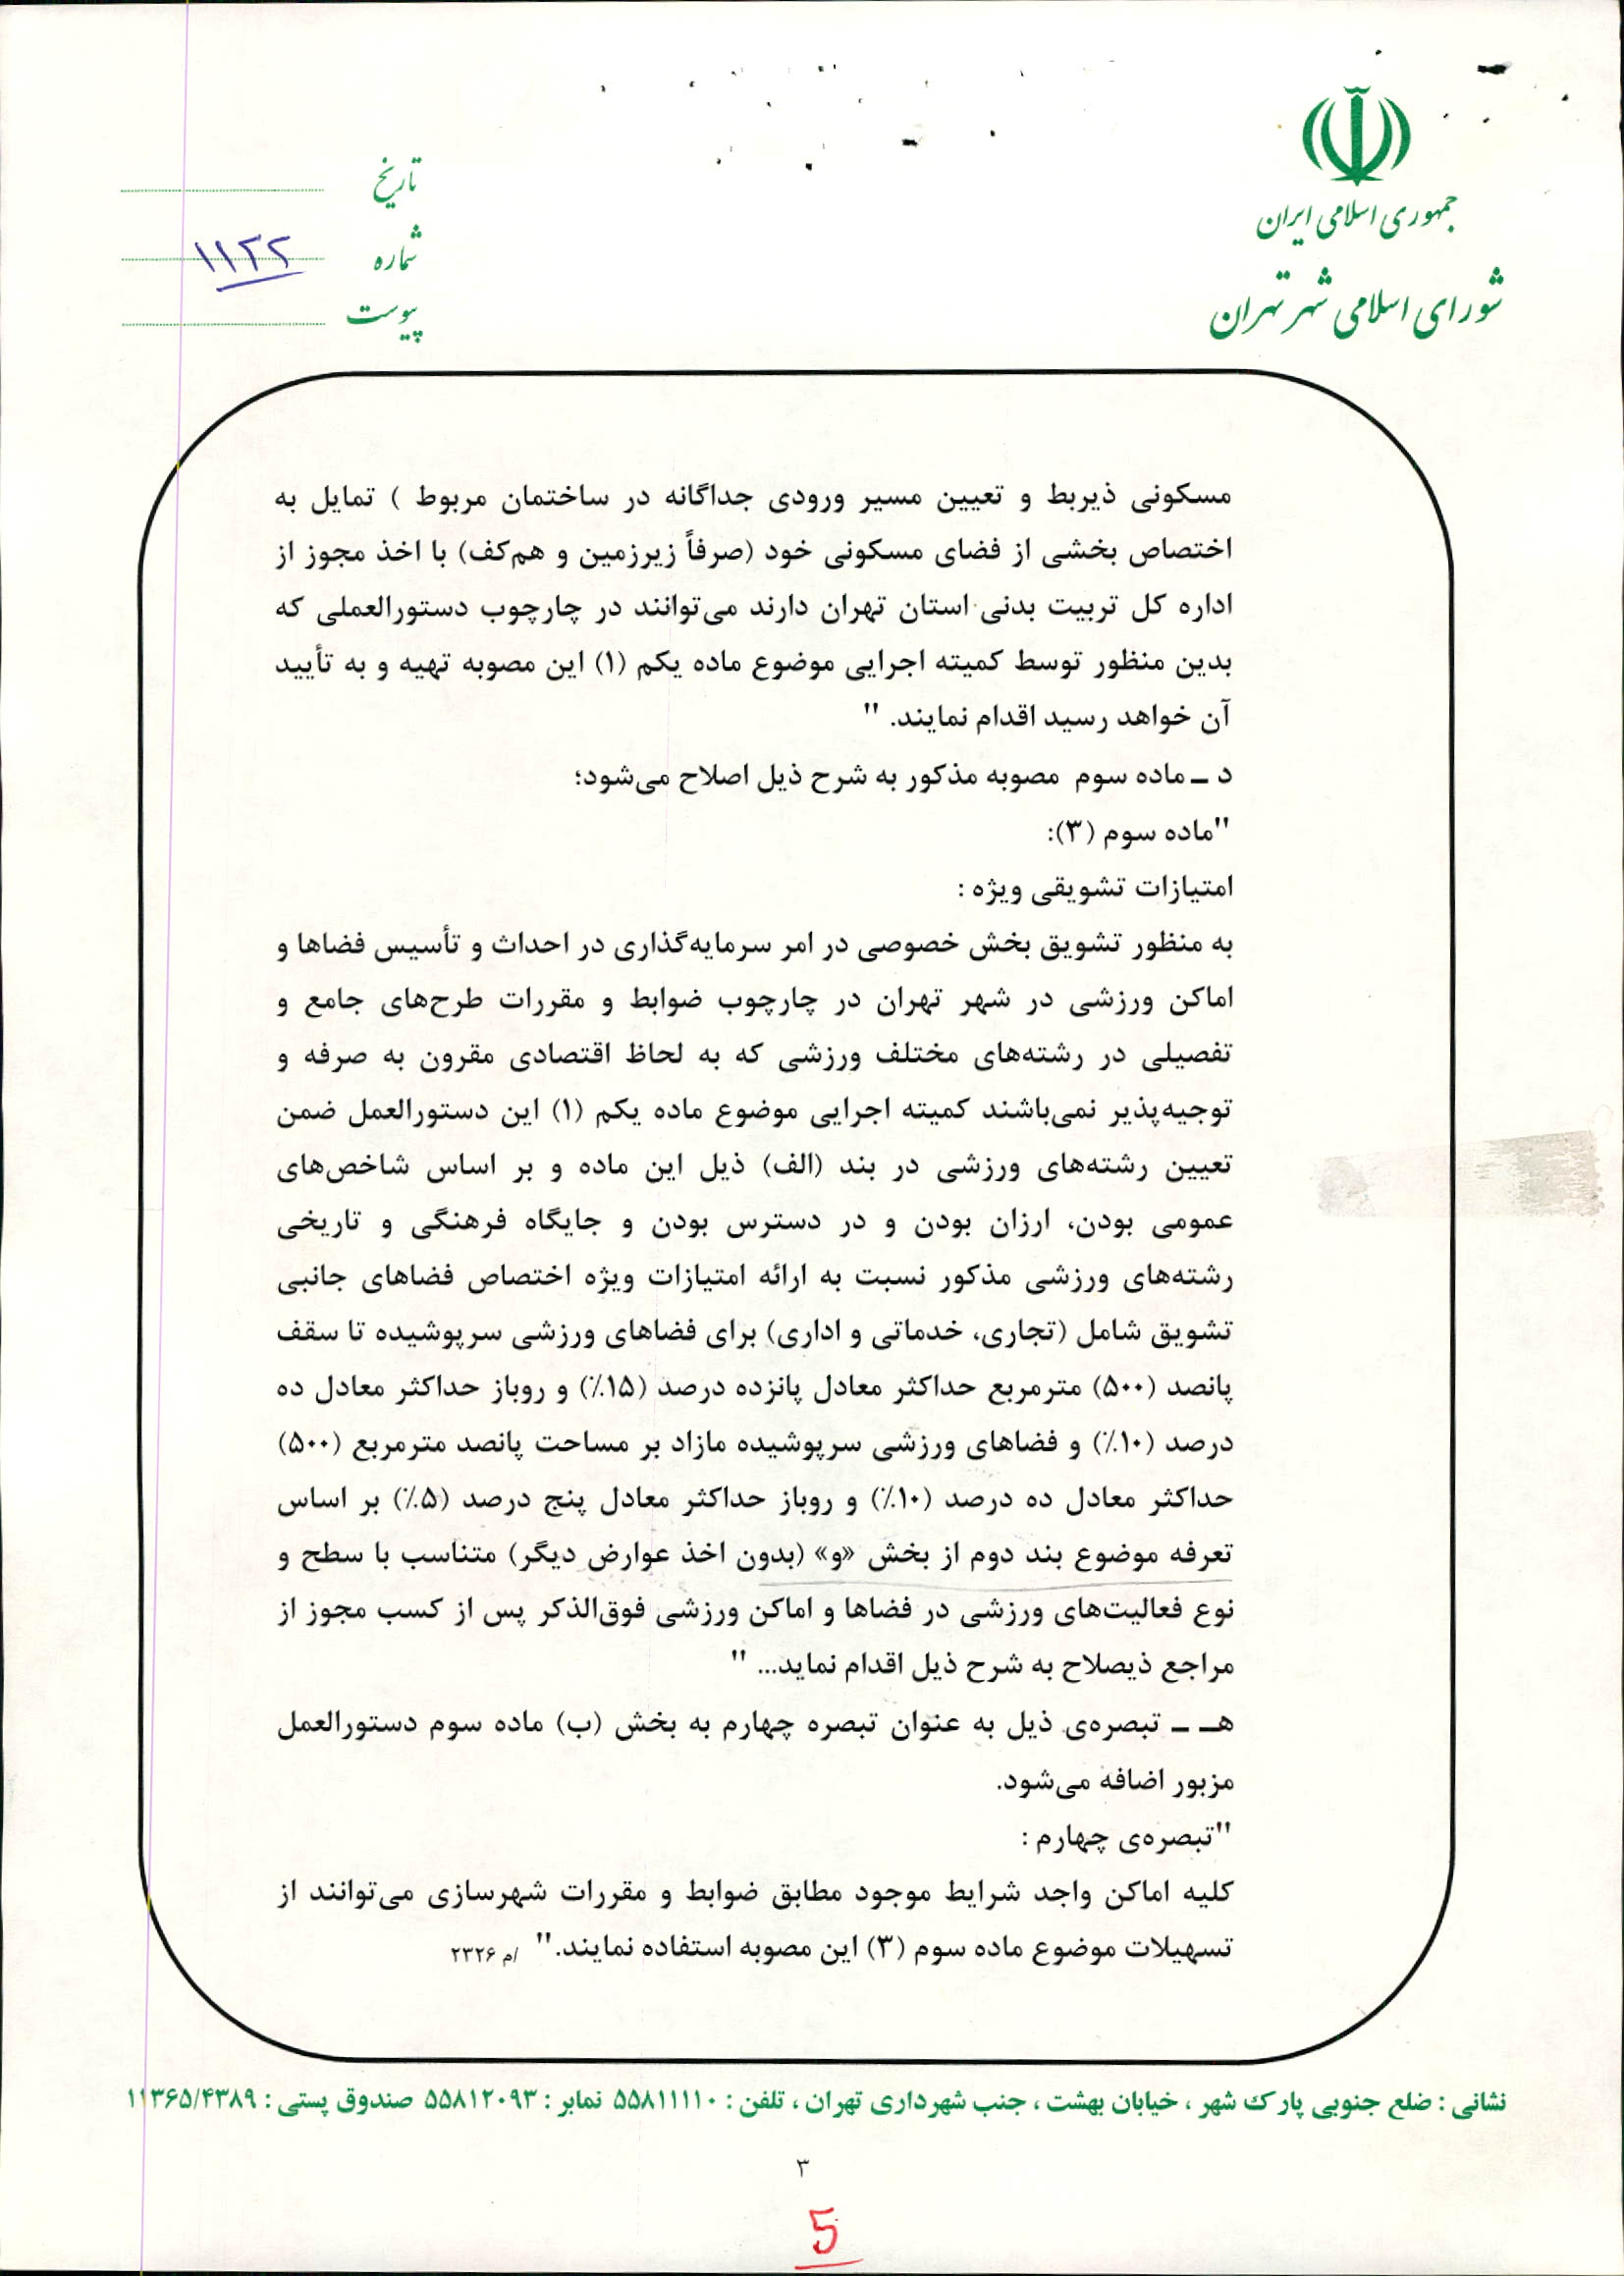 جمهوری اسلامی ایران
شورای اسلامی شهر تهران
تاریخ
شماره ۱۱۲۲
پیوست
مسکونی ذیربط و تعیین مسیر ورودی جداگانه در ساختمان مربوط ) تمایل به
اختصاص بخشی از فضای مسکونی خود (صرفاً زیرزمین و هم‌کف) با اخذ مجوز از
اداره کل تربیت بدنی استان تهران دارند می‌توانند در چارچوب دستورالعملی که
بدین منظور توسط کمیته اجرایی موضوع ماده یکم (۱) این مصوبه تهیه و به تأیید
آن خواهد رسید اقدام نمایند. "
د ـ ماده سوم مصوبه مذکور به شرح ذیل اصلاح می‌شود؛
"ماده سوم (۳):
امتیازات تشویقی ویژه :
به منظور تشویق بخش خصوصی در امر سرمایه‌گذاری در احداث و تأسیس فضاها و
اماکن ورزشی در شهر تهران در چارچوب ضوابط و مقررات طرح‌های جامع و
تفصیلی در رشته‌های مختلف ورزشی که به لحاظ اقتصادی مقرون به صرفه و
توجیه‌پذیر نمی‌باشند کمیته اجرایی موضوع ماده یکم (۱) این دستورالعمل ضمن
تعیین رشته‌های ورزشی در بند (الف) ذیل این ماده و بر اساس شاخص‌های
عمومی بودن، ارزان بودن و در دسترس بودن و جایگاه فرهنگی و تاریخی
رشته‌های ورزشی مذکور نسبت به ارائه امتیازات ویژه اختصاص فضاهای جانبی
تشویق شامل (تجاری، خدماتی و اداری) برای فضاهای ورزشی سرپوشیده تا سقف
پانصد (۵۰۰) مترمربع حداکثر معادل پانزده درصد (۱۵٪) و روباز حداکثر معادل ده
درصد (۱۰٪) و فضاهای ورزشی سرپوشیده مازاد بر مساحت پانصد مترمربع (۵۰۰)
حداکثر معادل ده درصد (۱۰٪) و روباز حداکثر معادل پنج درصد (۵٪) بر اساس
تعرفه موضوع بند دوم از بخش «و» (بدون اخذ عوارض دیگر) متناسب با سطح و
نوع فعالیت‌های ورزشی در فضاها و اماکن ورزشی فوق‌الذکر پس از کسب مجوز از
مراجع ذیصلاح به شرح ذیل اقدام نماید... "
هـ ـ تبصره‌ی ذیل به عنوان تبصره چهارم به بخش (ب) ماده سوم دستورالعمل
مزبور اضافه می‌شود.
"تبصره‌ی چهارم :
کلیه اماکن واجد شرایط موجود مطابق ضوابط و مقررات شهرسازی می‌توانند از
تسهیلات موضوع ماده سوم (۳) این مصوبه استفاده نمایند." /م ۲۳۲۶
نشانی : ضلع جنوبی پارک شهر ، خیابان بهشت ، جنب شهرداری تهران ، تلفن : ۵۵۸۱۱۱۱۰ نمابر : ۵۵۸۱۲۰۹۳ صندوق پستی : ۱۱۳۶۵/۴۳۸۹
۳
5